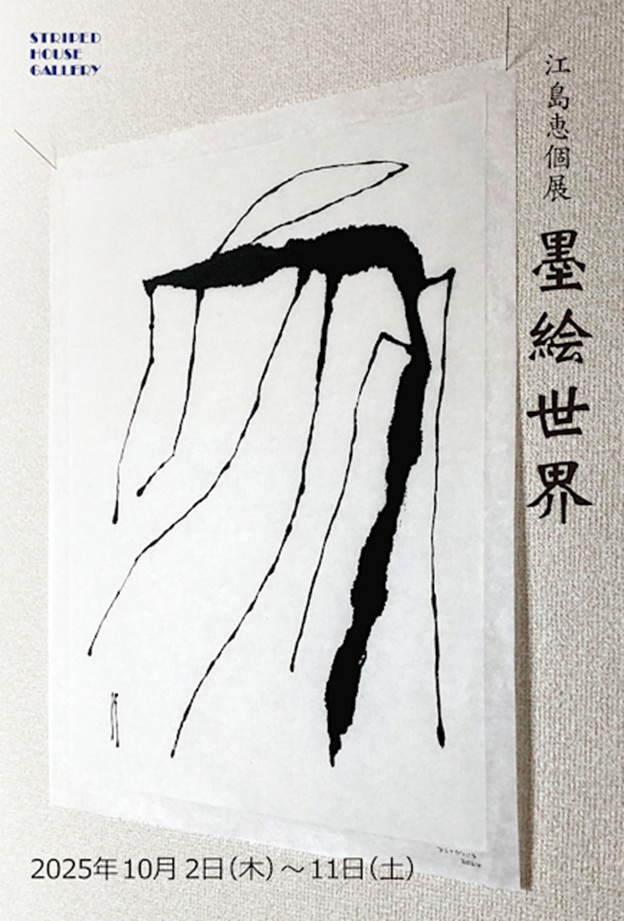 STRIPED
HOUSE
GALLERY
江島恵個展
墨絵世界
2025年10月2日(木)～11日(土)